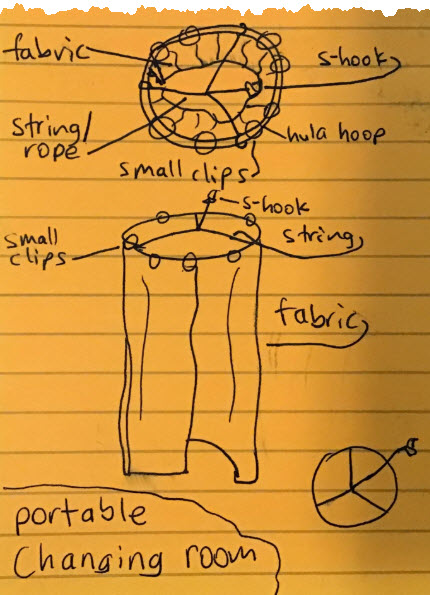 fabric
s-hook
string/
rope
hula hoop
small clips
s-hook
small
clips
string
fabric
portable
Changing room